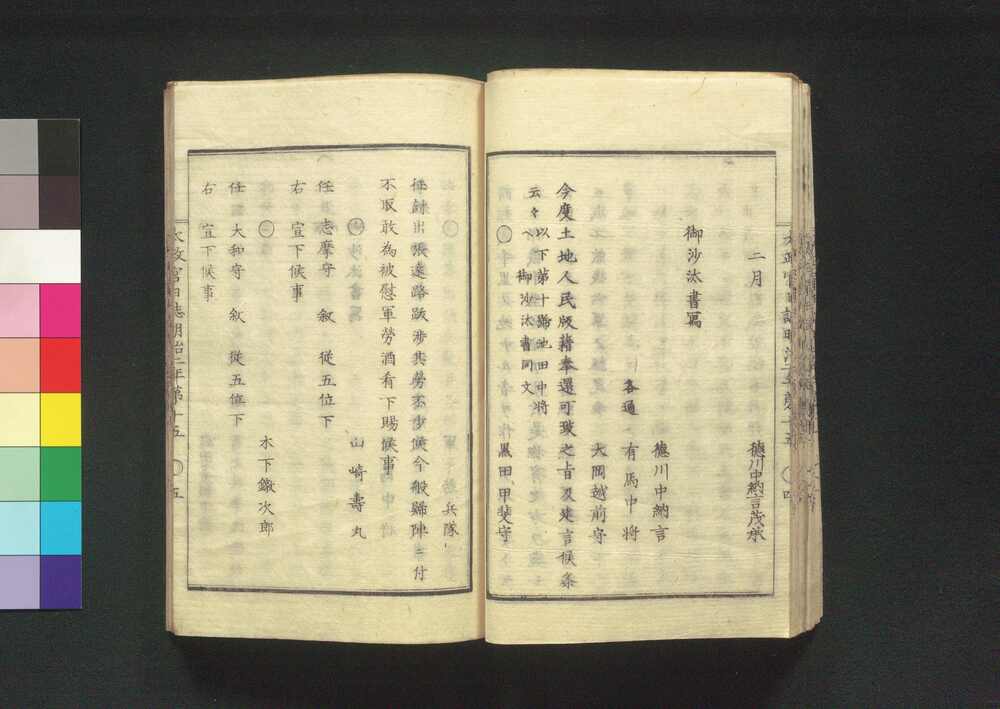 二月
徳川中納言茂承
御沙汰書寫
徳川中納言
各通
有馬中將
大岡越前守
今度土地人民版籍奉還可致之旨及建言候条
云々 以下第十號池田中将ヘ御沙汰書同文
黒田甲斐守
兵隊
出張遠路跋渉其労不少候今般歸陣ニ付
不取敢為被慰軍労酒肴下賜候事
山崎壽丸
任 志摩守 叙 従五位下
右 宣下候事
木下鐓次郎
任 大和守 叙 従五位下
右 宣下候事
太政官日誌明治二年第十五 五